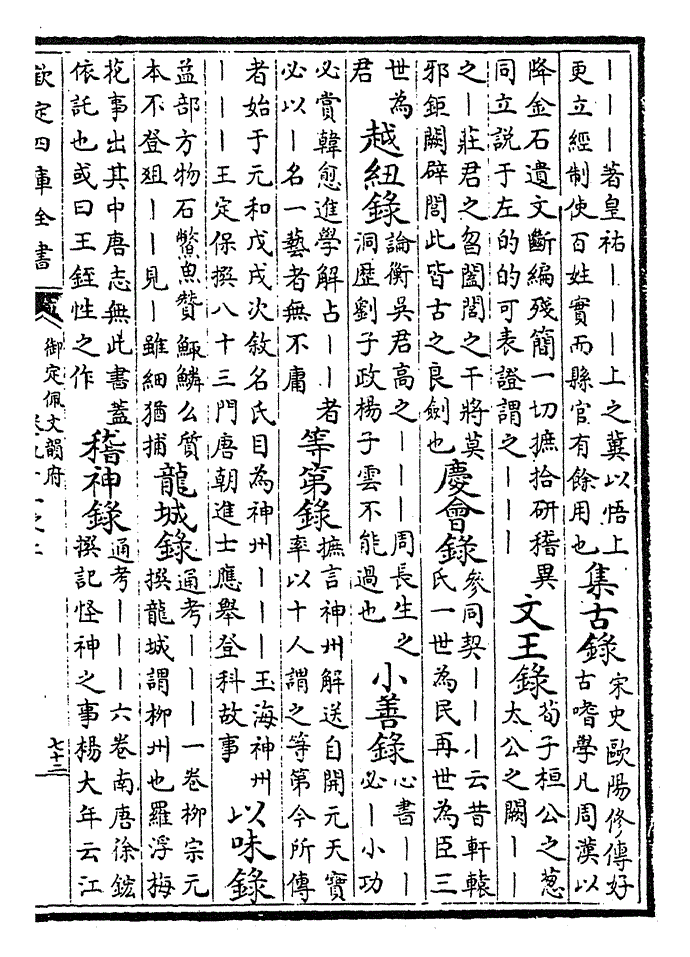 ｜｜｜著皇祐｜｜｜｜上之冀以悟上
更立經制使百姓實而縣官有餘用也
集古錄
宋史歐陽修傳好
古嗜學凡周漢以
降金石遺文斷編殘簡一切摭拾研稽異
同立説于左的的可表證謂之｜｜｜
文王錄
荀子桓公之葱
太公之闕｜｜
之｜莊君之曶闔閭之干將莫
邪鉅闕辟閭此皆古之良劍也
慶會錄
參同契｜｜｜云昔軒轅
氏一世為民再世為臣三
世為
君
越紐錄
論衡吳君高之｜｜｜周長生之
洞歴劉子政楊子雲不能過也
小善錄
心書｜｜
必｜小功
必賞韓愈進學解占｜｜者
必以｜名一藝者無不庸
等第錄
摭言神州解送自開元天寶
率以十人謂之等第今所傳
者始于元和戊戌次敘名氏目為神州｜｜｜玉海神州
｜｜｜王定保撰八十三門唐朝進士應舉登科故事
以味錄
益部方物石鱉魚贊鯫鱗么質
本不登俎｜｜見｜雖細猶捕
龍城錄
通考｜｜｜一卷柳宗元
撰龍城謂柳州也羅浮梅
花事出其中唐志無此書蓋
依託也或曰王銍性之作
稽神錄
通考｜｜｜六卷南唐徐鉉
撰記怪神之事楊大年云江
欽定四庫全書
御定佩文韻府
七十二